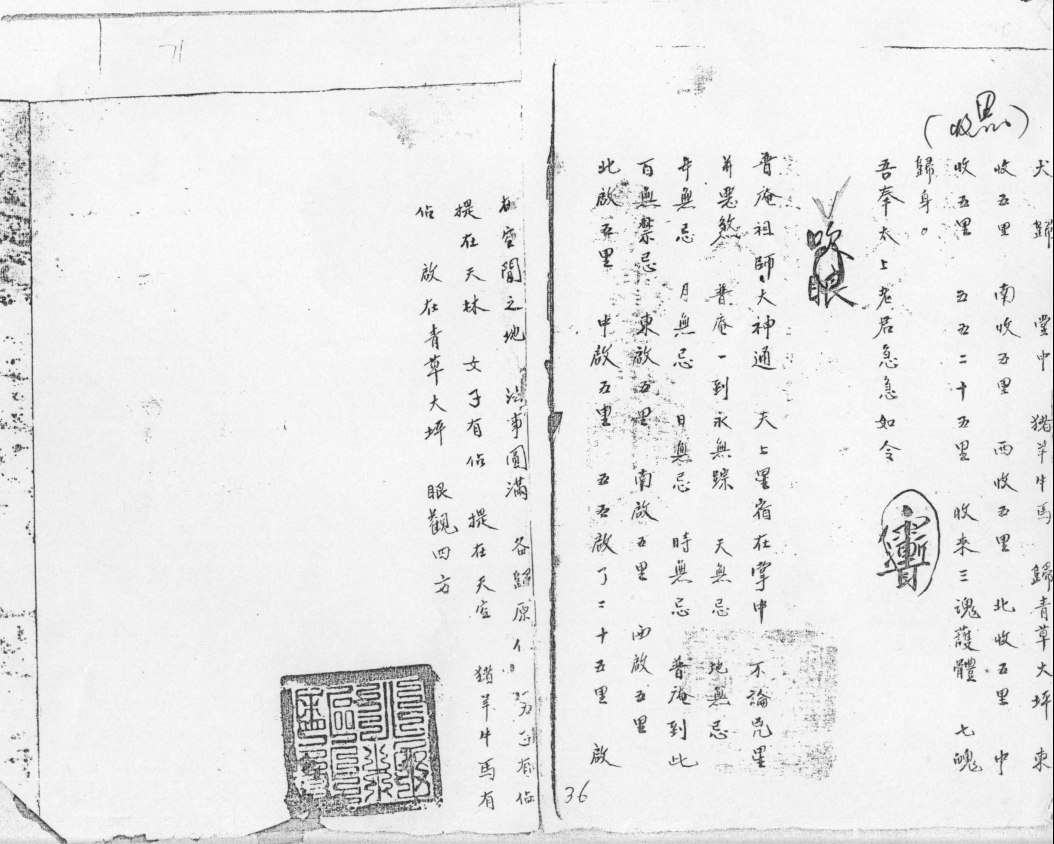 犬歸 堂中 猪羊牛馬 歸青草大坪 東
收五里 南收五里 西收五里 北收五里 中
收五里 五五二十五里 收來三魂護體 七魄
歸身。
(收黑)
吾奉太上老君急急如令
吹眼
普庵祖師大神通 天上星宿在掌中 不論兇星
并惡煞 普庵一到永無踪 天無忌 地無忌
年無忌 月無忌 日無忌 時無忌 普庵到此
百無禁忌 東啟五里 南啟五里 西啟五里
北啟五里 中啟五里 五五啟了二十五里 啟
36
在空閒之地 法事圓滿 各歸原位。男子有佔
提在天林 女子有佔 提在天宮 猪羊牛馬有
佔 啟在青草大坪 眼觀四方
71